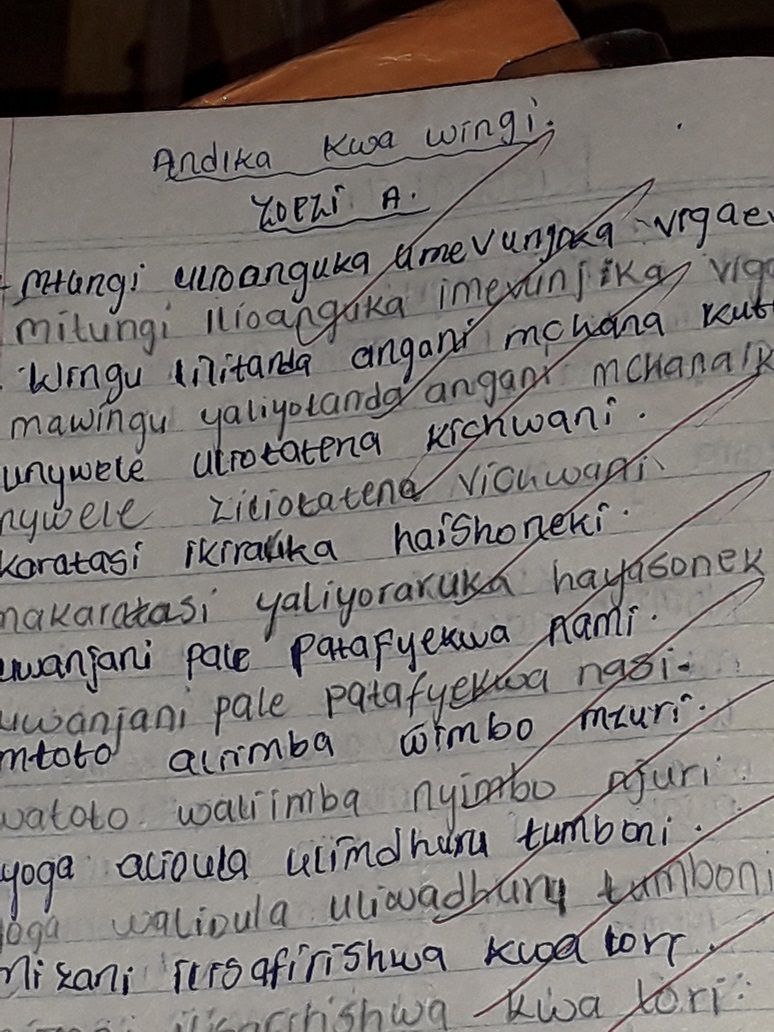 Andika kwa wingi.
Zoezi A.
Mtungi ulioanguka umevunjika vigae
mitungi ilioanguka imevunjika viga
Wingu lilitanda angani mchana kut
mawingu yaliyotanda angani mchana k
unywele uliotatena kichwani.
nywele ziliotatena vichwani
karatasi ikiraruka haishoneki.
makaratasi yaliyoraruka hayasonek
uwanjani pale patafyekwa nami.
uwanjani pale patafyekwa nasi.
mtoto aliimba wimbo mzuri.
watoto waliimba nyimbo njuri.
yoga alioula ulimdhuru tumboni.
yoga walioula uliwadhuru tumboni
mizani ilisafirishwa kwa lori.
kwa lori.